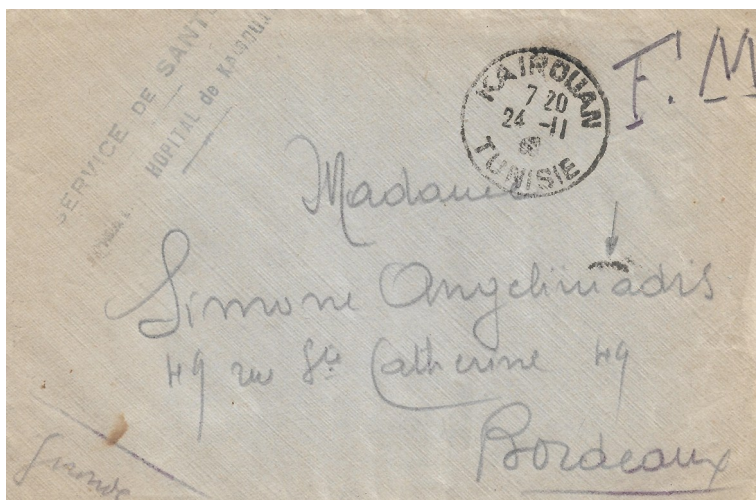 SERVICE DE SANTÉ
HOPITAL de KAIROUAN
KAIROUAN
7 20
24 -11
TUNISIE
F.M
Madame
Simone Angeliniadis
49 rue Ste Catherine 49
Bordeaux
Gironde